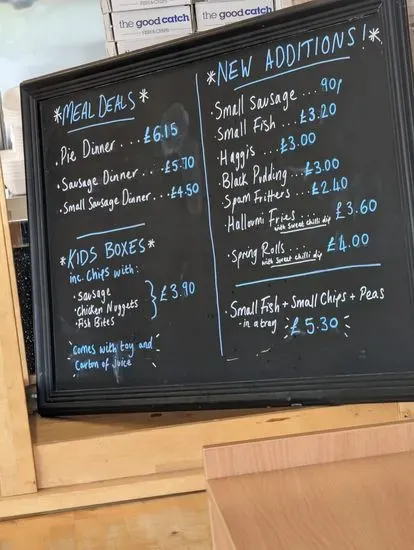 the good catch
FISH & CHIPS
the good catch
FISH & CHIPS
*MEAL DEALS*
• Pie Dinner ... £6.15
• Sausage Dinner ... £5.70
• Small Sausage Dinner ... £4.50
*KIDS BOXES*
inc. Chips with:
• Sausage
• Chicken Nuggets
• Fish Bites
} £3.90
comes with toy and
Carton of Juice
*NEW ADDITIONS!*
• Small Sausage ... 90p
• Small Fish ... £3.20
• Haggis ... £3.00
• Black Pudding ... £3.00
• Spam Fritters ... £2.40
• Halloumi Fries ... £3.60
with Sweet chilli dip
• Spring Rolls ... £4.00
with Sweet chilli dip
• Small Fish + Small Chips + Peas
- in a tray £5.30